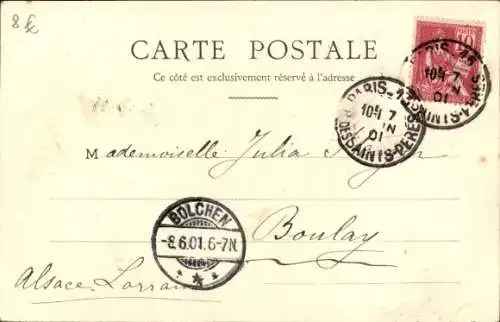 8 £
CARTE POSTALE
Ce côté est exclusivement réservé à l'adresse
10
PARIS-15
10H 7
IN
01
R. DES SAINTS-PERES
PARIS-15
10H 7
IN
01
R. DES SAINTS-PERES
Mademoiselle Julia
BOLCHEN
-8.6.01.6-7N.
Boulay
Alsace Lorraine